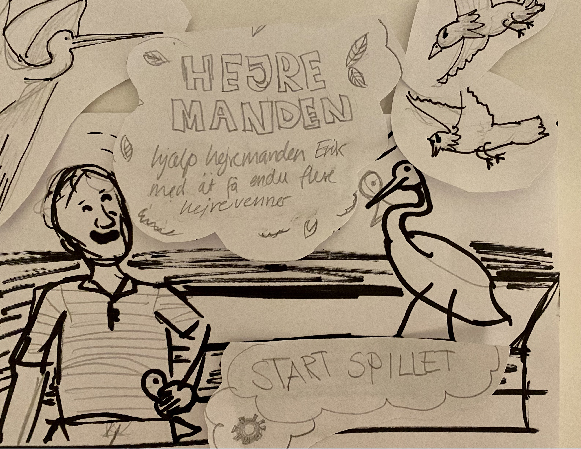 HEJRE
MANDEN
hjælp hejremanden Erik
med åt få endu flere
hejrevenner
START SPILLET